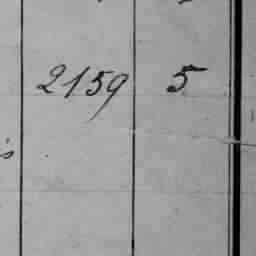 2159 5